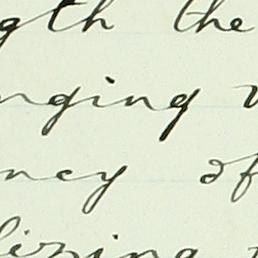 gth the
nging
ncy of
ing